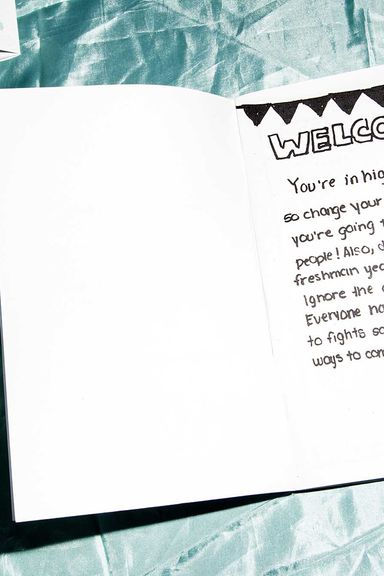 WELCO
You're in hig
so change your
you're going t
people! Also, d
freshman yea
Ignore the
Everyone ha
to fights so
ways to con